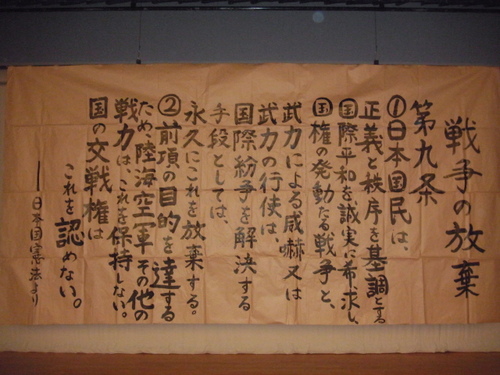 戦争の放棄
第九条
①日本国民は、
正義と秩序を基調とする
国際平和を誠実に希求し、
国権の発動たる戦争と、
武力による威嚇又は
武力の行使は、
国際紛争を解決する
手段としては、
永久にこれを放棄する。
②前項の目的を達する
ため、陸海空軍その他の
戦力は、これを保持しない。
国の交戦権は
これを認めない。
―日本国憲法より